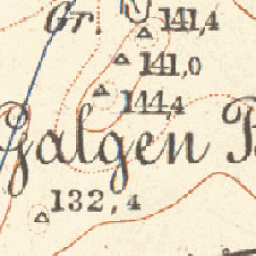 Gr.
141,4
141,0
144,4
Galgen B
132,4